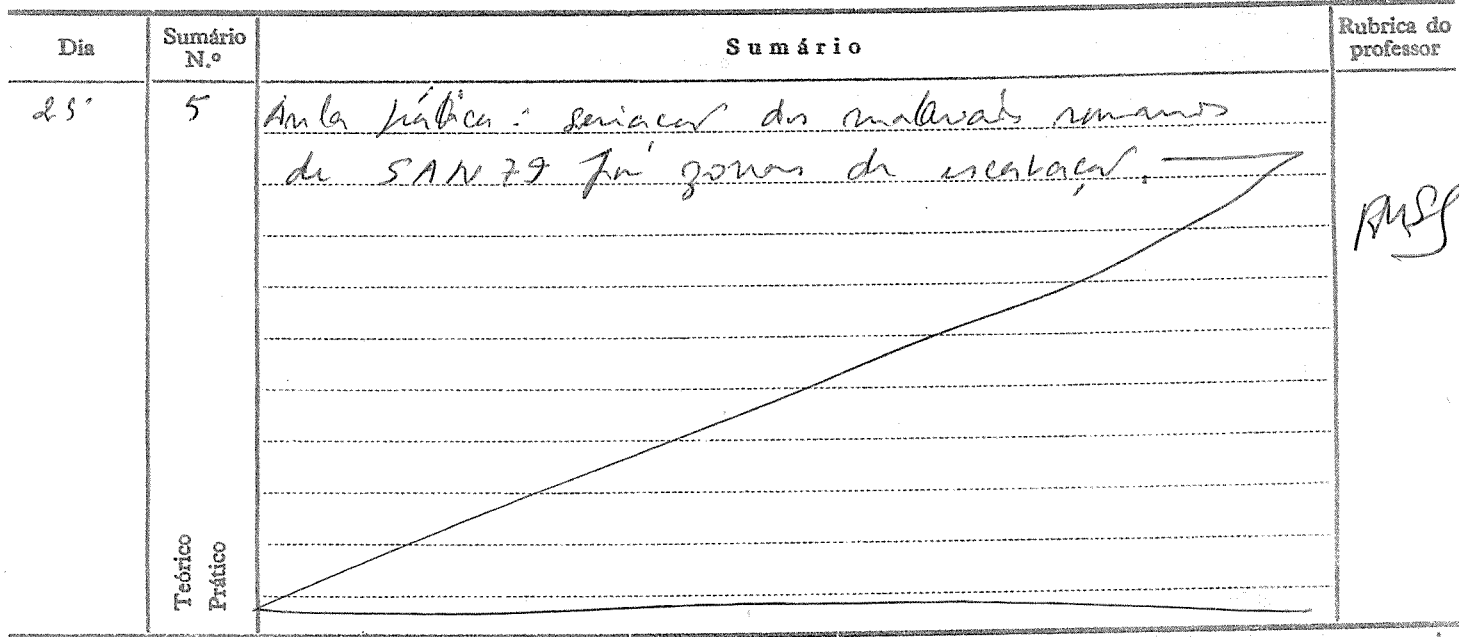 Dia
Sumário N.º
Sumário
Rubrica do professor
25
5
Aula prática: seriação dos materiais romanos
de SAN 79 por zonas de escavação.
Teórico
Prático